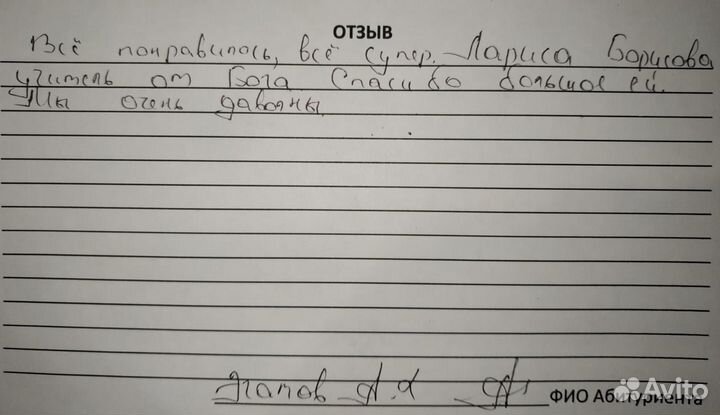 ОТЗЫВ
Всё понравилось, всё супер. Лариса Борисова
учитель от Бога Спасибо большое ей.
Мы очень давольны.
А.Х
ФИО Абитуриента
Avito